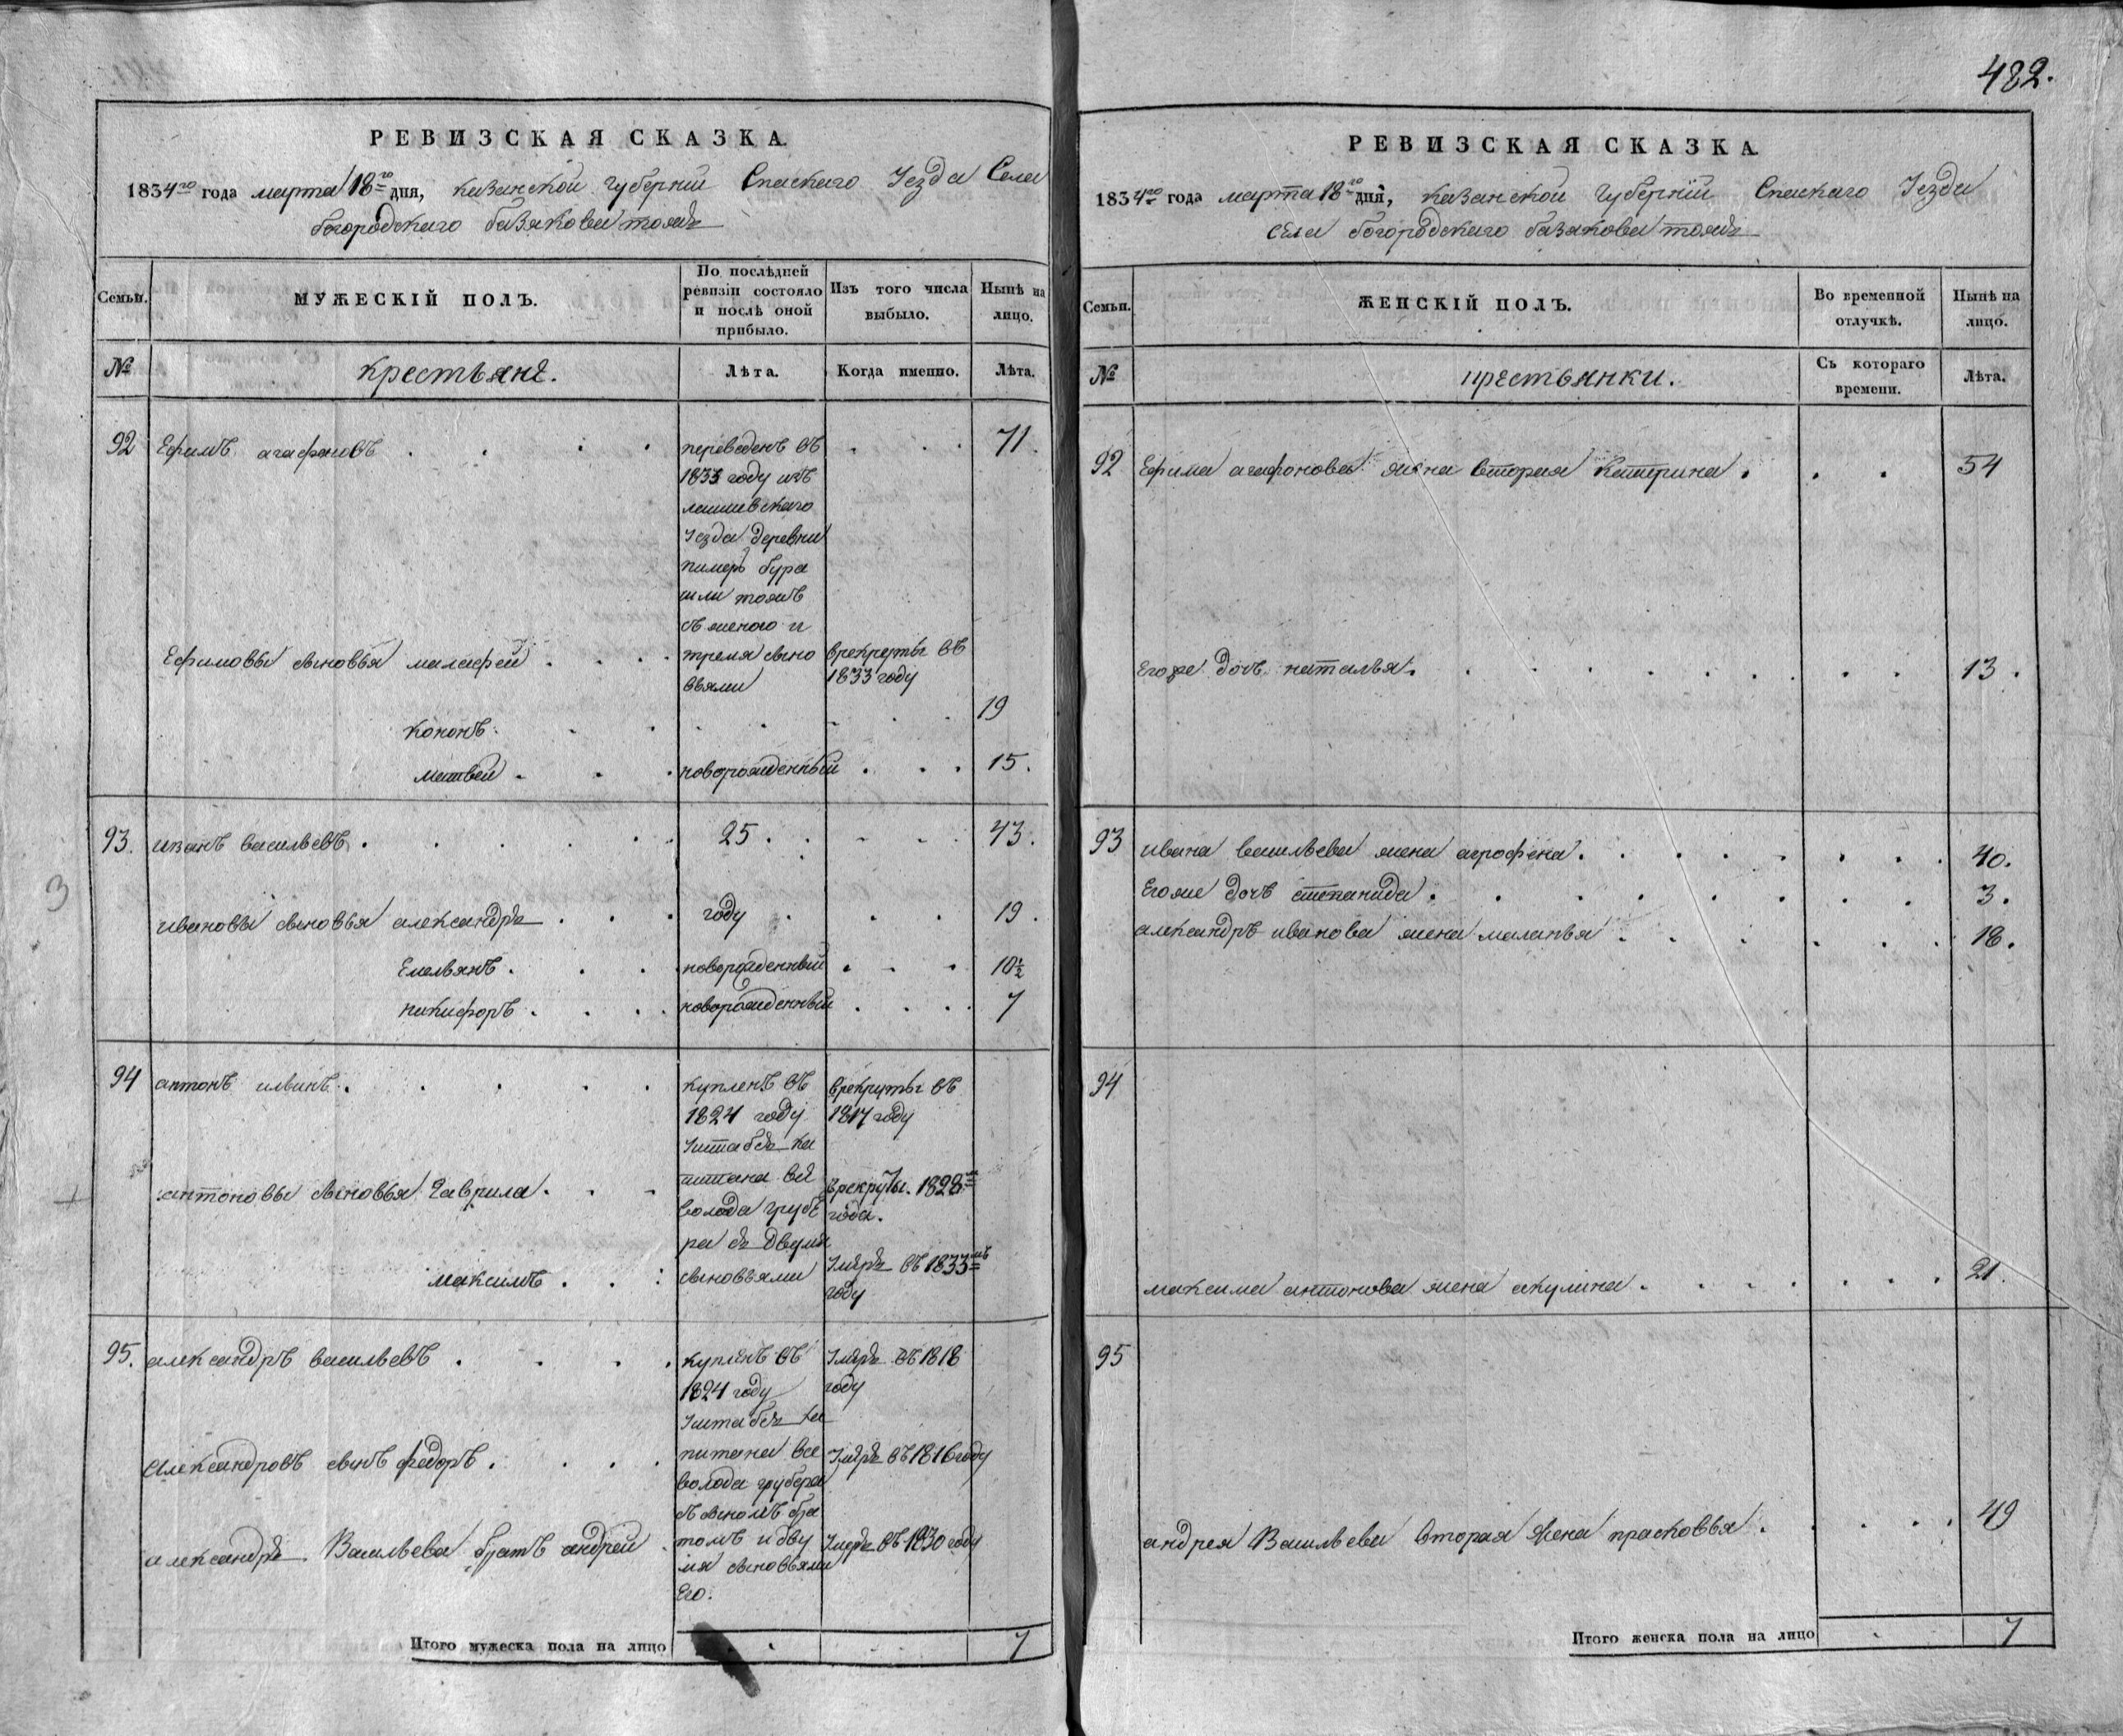 482.
РЕВИЗСКАЯ СКАЗКА.
1834го года марта 18го дня, казанской губерніи Спаскаго Уезда Села
богородскаго базяковатожъ
Семьи.
МУЖЕСКІЙ ПОЛЪ.
По послѣдней
ревизіи состояло
и послѣ оной
прибыло.
Изъ того числа
выбыло.
Нынѣ на
лицо.
№
крестьяне.
Лѣта.
Когда именно.
Лѣта.
92 Ефимъ агафоновъ . . . . переведенъ въ . . . 71.
1833 году изъ
лаишевскаго
Уезда деревни
пимерь бура
шли тожъ
съ женою и
Ефимовы сыновья малафей . . . тремя сыно врекруты въ
вьями 1833 году
кононъ . . . . . . . 19
матвей . . . новорожденный . . . 15.
93. иванъ васильевъ . . . . . 25 . . . . 43.
ивановы сыновья александръ . . . году . . . 19.
Емельянъ . . . новорожденный . . . 10½
никифоръ . . . новорожденный . . . 7
94 антонъ ильинъ . . . . . купленъ въ врекруты въ
1824 году 1817 году
Уштабсъ ка
питана все
антоновы сыновья Гаврила . . . волода грубе врекруты. 1828го
ра съ двумя года.
максимъ . . : сыновьями Умре въ 1833мъ
году
95. александръ васильевъ . . . . купленъ въ Умре въ 1818
1824 году году
Уштабсъ ка
Александровъ сынъ федоръ . . . . питана все Умре въ 1816 году
волода грубера
съ сыномъ бра
александра Васильева братъ андрей . томъ и дву Умре въ 1830 году
мя сыновьями
Его.
Итого мужеска пола на лицо . . 7
РЕВИЗСКАЯ СКАЗКА.
1834го года марта 18го дня, казанской губерніи Спаскаго Уезда
села богородскаго базяковатожъ
Семьи.
ЖЕНСКІЙ ПОЛЪ.
Во временной
отлучкѣ.
Нынѣ на
лицо.
№
крестьянки.
Съ котораго
времени.
Лѣта.
92 Ефима агафонова жена вторая катерина . . . 54
Егоже дочь наталья . . . . . . . . . 13.
93 ивана васильева жена агрофена . . . . . . . 40.
Егоже дочь степанида . . . . . . . . . 3.
александръ иванова жена маланья . . . . . . 18.
94
максима антонова жена акулина . . . . . . 21.
95
андрея Васильева Вторая Жена прасковья . . . . . 49
Итого женска пола на лицо . 7
3